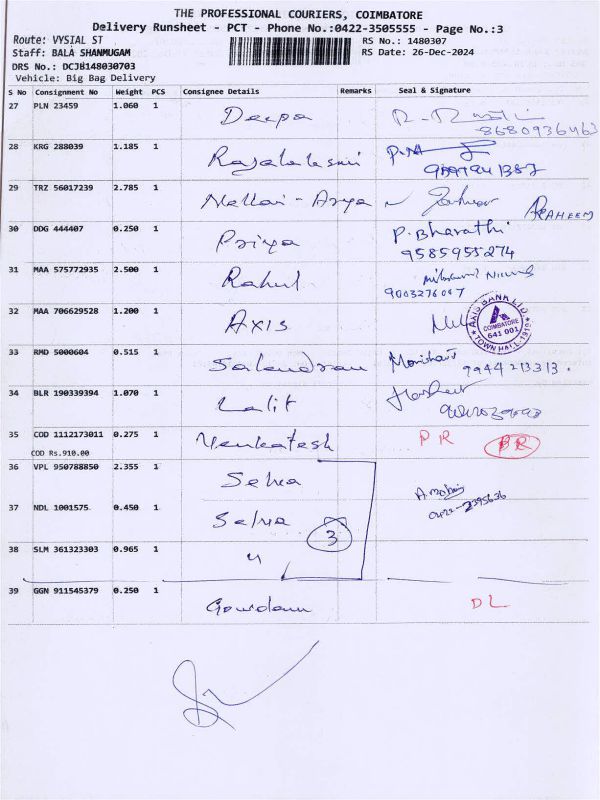 THE PROFESSIONAL COURIERS, COIMBATORE
Delivery Runsheet - PCT - Phone No.:0422-3505555 - Page No.:3
Route: VYSIAL ST RS No.: 1480307
Staff: BALA SHANMUGAM RS Date: 26-Dec-2024
DRS No.: DCJB148030703
Vehicle: Big Bag Delivery
S No Consignment No Weight PCS Consignee Details Remarks Seal & Signature
27 PLN 23459 1.060 1 Deepa
8680936463
28 KRG 288039 1.185 1 Rajalakshmi
29 TRZ 56017239 2.785 1 Nellai - Arya
A RAHEEM
30 DDG 444407 0.250 1 Priya P. Bharathi
9585955274
31 MAA 575772935 2.500 1 Rahul
9003276007
32 MAA 706629528 1.200 1 AXIS
AXIS BANK LTD
COIMBATORE
641 001
TOWN HALL-1910
33 RMD 5000604 0.515 1
9944213313.
34 BLR 190339394 1.070 1 Lalit
35 COD 1112173011 0.275 1 Venkatesh PR BR
COD Rs.910.00
36 VPL 950788850 2.355 1 Selva
0422-2395636
37 NDL 1001575 0.450 1 Selva
3
38 SLM 361323303 0.965 1 "
39 GGN 911545379 0.250 1 DL